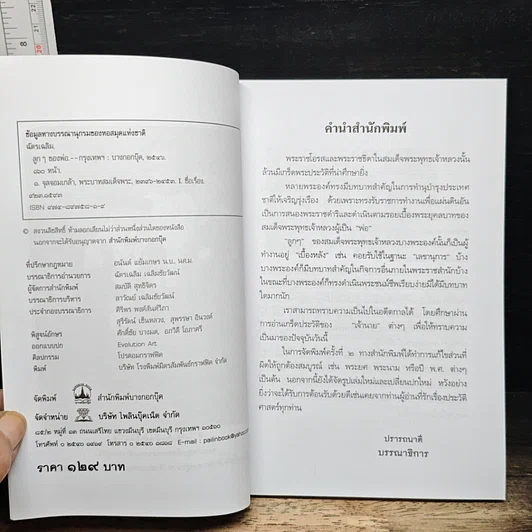 ข้อมูลทางบรรณานุกรมของหอสมุดแห่งชาติ
ฉัตรเฉลิม.
ลูก ๆ ของพ่อ.--กรุงเทพฯ : บางกอกบุ๊ค, ๒๕๔๖.
๑. จุลจอมเกล้า, พระบาทสมเด็จพระ, ๒๓๙๖-๒๔๕๓. I. ชื่อเรื่อง.
๙๒๓.๑๕๙๓
© สงวนลิขสิทธิ์ ห้ามลอกเลียนไม่ว่าส่วนหนึ่งส่วนใดของหนังสือ
นอกจากจะได้รับอนุญาตจาก สำนักพิมพ์บางกอกบุ๊ค
ที่ปรึกษากฎหมาย อนันต์ แย้มเกษร น.บ. นศ.ม.
บรรณาธิการอำนวยการ ฉัตรเฉลิม เฉลิมชัยวัฒน์
ผู้จัดการสำนักพิมพ์ สมบัติ สุทธิจิตร
บรรณาธิการบริหาร ลาวัณย์ เฉลิมชัยวัฒน์
ประจำกองบรรณาธิการ ศิริพร พงศ์สันติวิภา
สุรีรัตน์ เซ็นหลวง, สุพรรษา อินวงค์
พิสูจน์อักษร ศักดิ์ชัย บางผด, อภวิสี โอภาศรี
ออกแบบปก Evolution Art
ศิลปกรรม โปรดอมกราฟฟิค
พิมพ์ บริษัท โรงพิมพ์มิตรสัมพันธ์กราฟฟิค จำกัด
จัดพิมพ์ สำนักพิมพ์บางกอกบุ๊ค
จัดจำหน่าย บริษัท ไพลินบุ๊คเน็ต จำกัด
๘๕/๒ หมู่ที่ ๑๓ ถนนเสรีไทย แขวงมีนบุรี เขตมีนบุรี กรุงเทพฯ ๑๐๕๑๐
E-mail : pailinbook@yahoo
ราคา ๑๒๙ บาท
คำนำสำนักพิมพ์
พระราชโอรสและพระราชธิดาในสมเด็จพระพุทธเจ้าหลวงนั้น
ล้วนมีเกร็ดพระประวัติที่น่าศึกษายิ่ง
หลายพระองค์ทรงมีบทบาทสำคัญในการทำนุบำรุงประเทศ
ชาติให้เจริญรุ่งเรือง ด้วยเพราะทรงรับราชการทำงานเพื่อแผ่นดินอัน
เป็นการสนองพระราชดำริและดำเนินตามรอยเบื้องพระยุคลบาทของ
สมเด็จพระพุทธเจ้าหลวงผู้เป็น "พ่อ"
"ลูกๆ" ของสมเด็จพระพุทธเจ้าหลวงบางพระองค์นั้นก็เป็นผู้
ทำงานอยู่ "เบื้องหลัง" เช่น คอยรับใช้ในฐานะ "เลขานุการ" บ้าง
บางพระองค์ก็มีบทบาทสำคัญในกิจการอื่นภายในพระราชสำนักบ้าง
ในขณะที่บางพระองค์ก็ทรงดำเนินพระชนม์ชีพเรียบง่ายมิได้มีบทบาท
ใดมากนัก
เราสามารถทราบความเป็นไปในอดีตกาลได้ โดยศึกษาผ่าน
การอ่านเกร็ดประวัติของ "เจ้านาย" ต่างๆ เพื่อให้ทราบความ
เป็นมาของปัจจุบันวันนี้
ในการจัดพิมพ์ครั้งที่ ๒ ทางสำนักพิมพ์ได้ทำการแก้ไขส่วนที่
ผิดให้ถูกต้องสมบูรณ์ เช่น พระยศ พระนาม หรือปี พ.ศ. ต่างๆ
เป็นต้น นอกจากนี้ยังได้จัดรูปเล่มใหม่และเปลี่ยนปกใหม่ หวังอย่าง
ยิ่งว่าจะได้รับการต้อนรับด้วยดีเช่นเคยจากท่านผู้อ่านที่รักเรื่องประวัติ
ศาสตร์ทุกท่าน
ปรารถนาดี
บรรณาธิการ